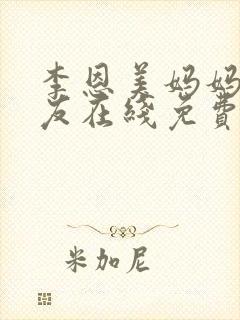 李恩美妈妈
友在线免费
米加尼